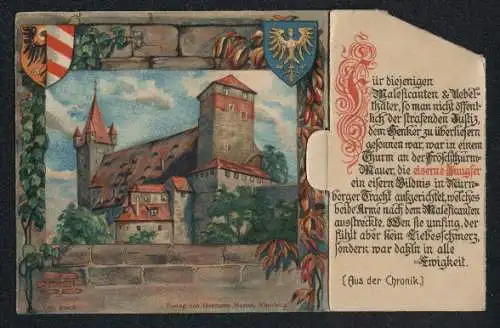 Für diejenigen
Maleficanten & Uebel-
thäter, so man nicht öffent-
lich der strafenden Justiz,
dem Henker zu überliefern
gesonnen war, war in einem
Thurm an der Froschthurm-
Mauer, die eiserne Jungfer
ein eisern Bildnis in Nürn-
berger Tracht aufgerichtet, welches
beide Arme nach dem Maleficanten
ausstreckte. Wen sie umfing, der
fühlt aber kein Liebesschmerz,
sondern war dahin in alle
Ewigkeit.
(Aus der Chronik.)
Verlag von Hermann Martin, Nürnberg.